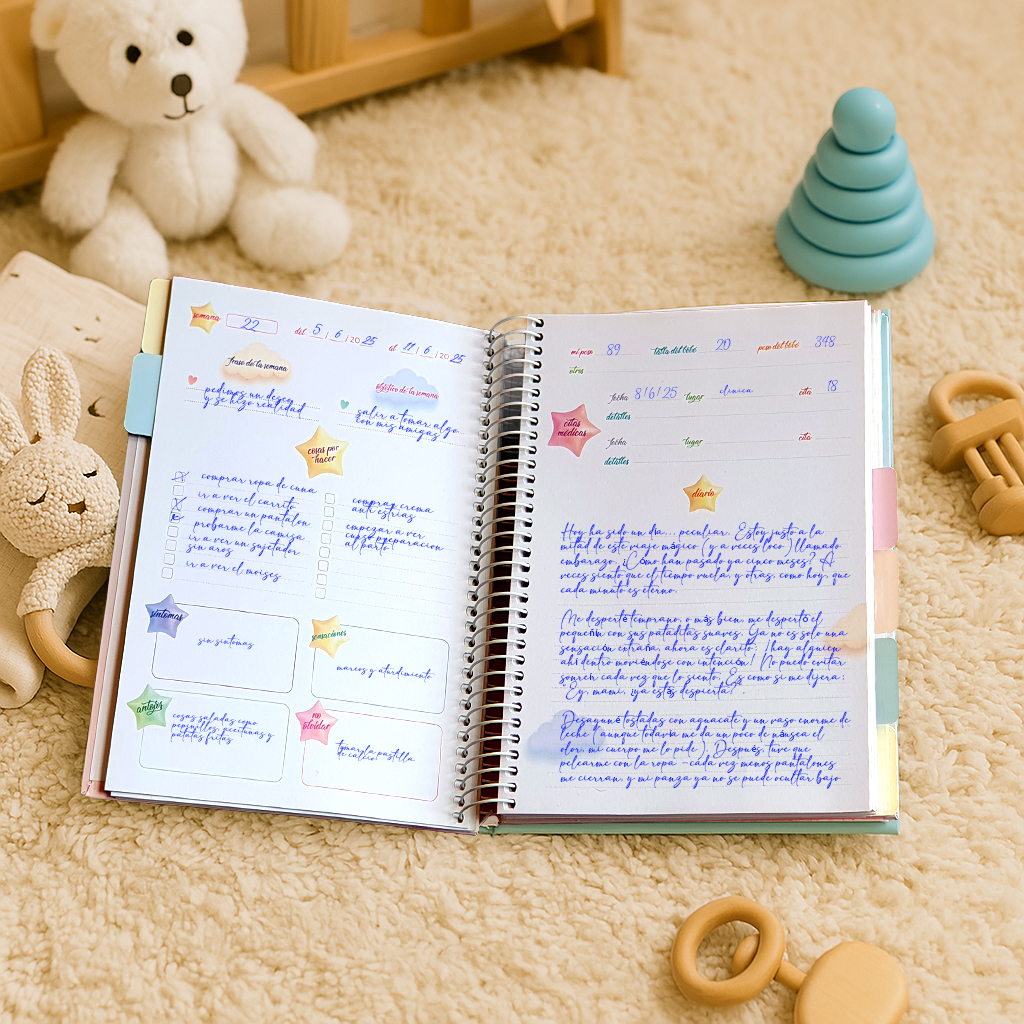 semana 22 del 5 / 6 / 2025 al 11 / 6 / 2025
frase de la semana
pedimos un deseo
y se hizo realidad
objetivo de la semana
salir a tomar algo
con mis amigas
cosas por
hacer
comprar ropa de cuna
ir a ver el carrito
comprar un pantalon
probarme la camisa
ir a ver un sujetador
sin aros
ir a ver el moises
comprar crema
anti estrias
empezar a ver
curso preparacion
al parto!
síntomas
sin sintomas
sensaciones
mareos y aturdimiento
antojos
cosas saladas como
pepinillos, aceitunas y
patatas fritas
no
olvidar
tomar la pastilla
de calcio!
mi peso 89 talla del bebé 20 peso del bebé 348
otros
citas
médicas
fecha 8/6/25 lugar clinica cita 18
detalles
fecha lugar cita
detalles
diario
Hoy ha sido un día... peculiar. Estoy justo a la
mitad de este viaje mágico (y a veces loco) llamado
embarazo. ¿Cómo han pasado ya cinco meses? A
veces siento que el tiempo vuela, y otras, como hoy, que
cada minuto es eterno.
Me desperté temprano, o más bien me despertó el
pequeñín con sus pataditas suaves. Ya no es solo una
sensación extraña, ahora es clarito: ¡hay alguien
ahí dentro moviéndose con intención! No puedo evitar
sonreír cada vez que lo siento. Es como si me dijera:
"Ey, mami, ¿ya estás despierta?".
Desayuné tostadas con aguacate y un vaso enorme de
leche (aunque todavía me da un poco de náusea el
olor, mi cuerpo me lo pide). Después, tuve que
pelearme con la ropa —cada vez menos pantalones
me cierran, y mi panza ya no se puede ocultar bajo